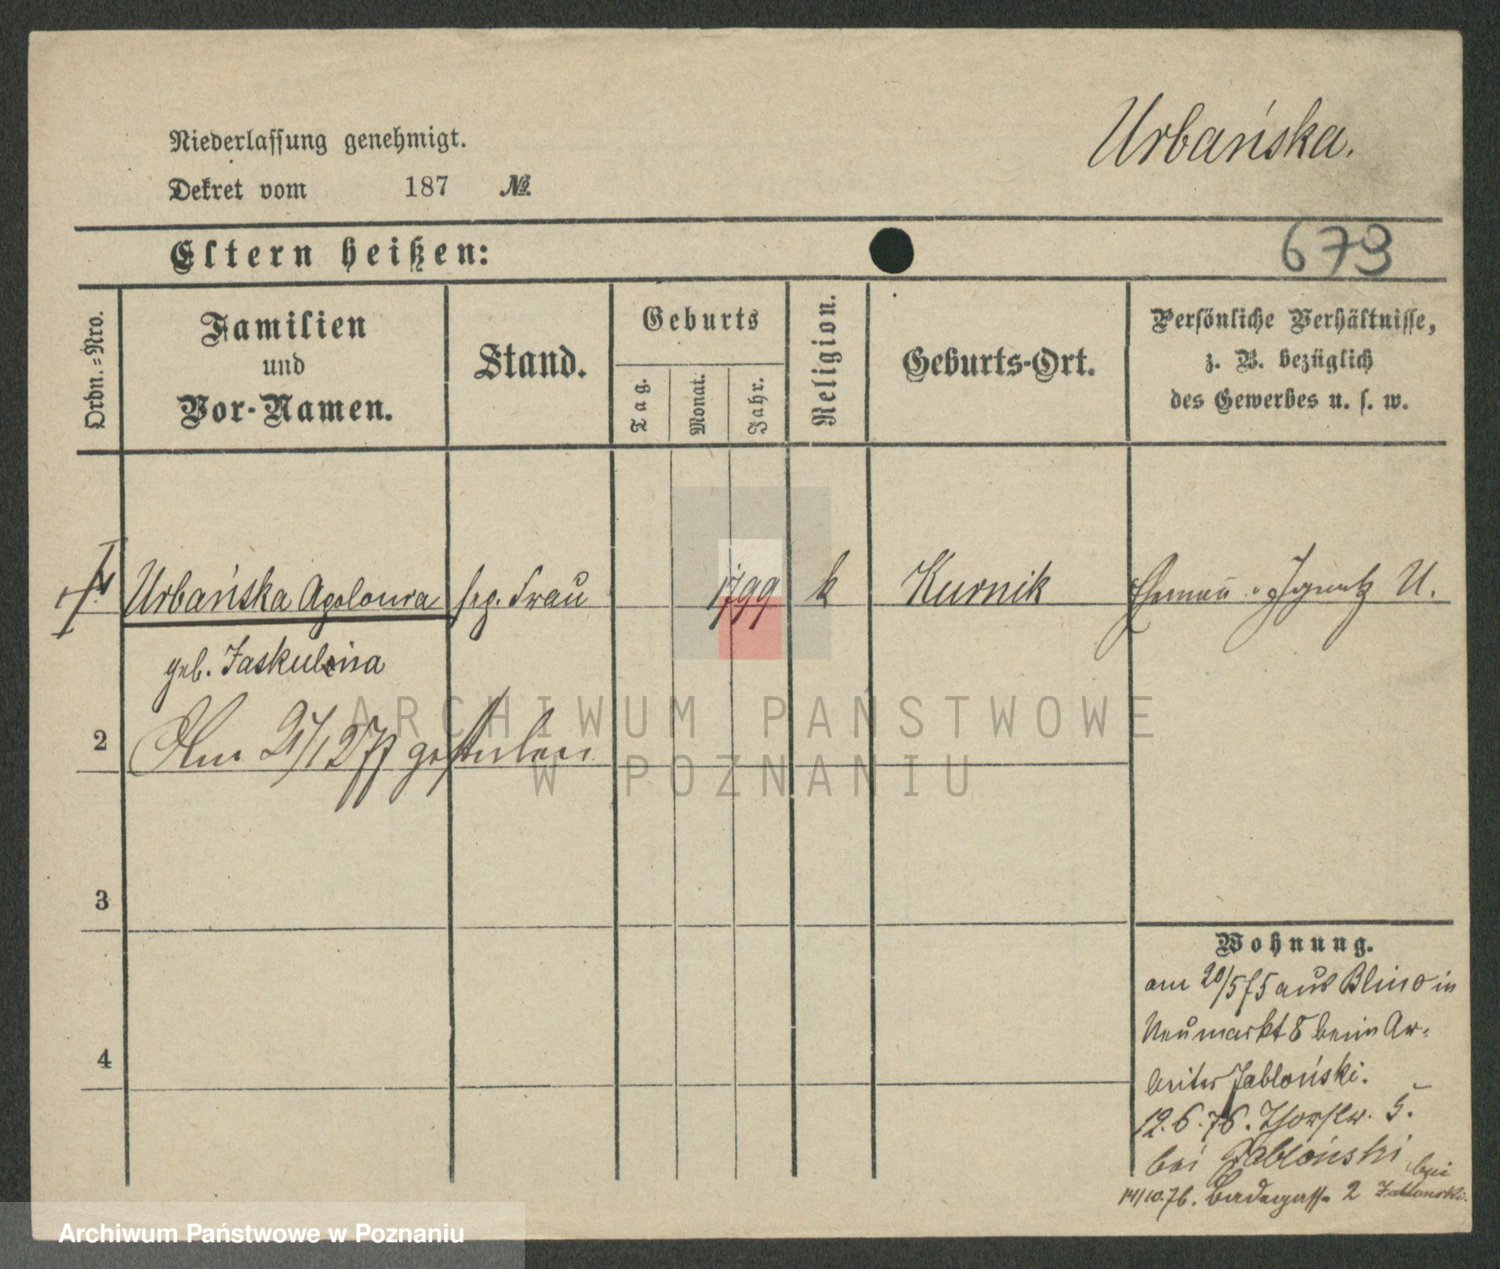 Urbańska.
Niederlassung genehmigt.
Dekret vom 187 №
Eltern heißen:
679
Ordn.-Nro.
Familien
und
Vor-Namen.
Stand.
Geburts
Tag.
Monat.
Jahr.
Religion.
Geburts-Ort.
Persönliche Verhältnisse,
z. B. bezüglich
des Gewerbes u. s. w.
Urbańska Apolonia sep. Frau 1799 k Kurnik Ignatz U.
geb. Jaskulska
2
Am 21/1 277 gestorben
3
4
Wohnung.
am 20/5 75 aus in
Neumarkt 8 beim Ar-
beiter Jabloński.
12.6.76. 5.
bei Jabloński
14/10.76. Badegasse 2 bei Jablonski.
ARCHIWUM PAŃSTWOWE
W POZNANIU
Archiwum Państwowe w Poznaniu